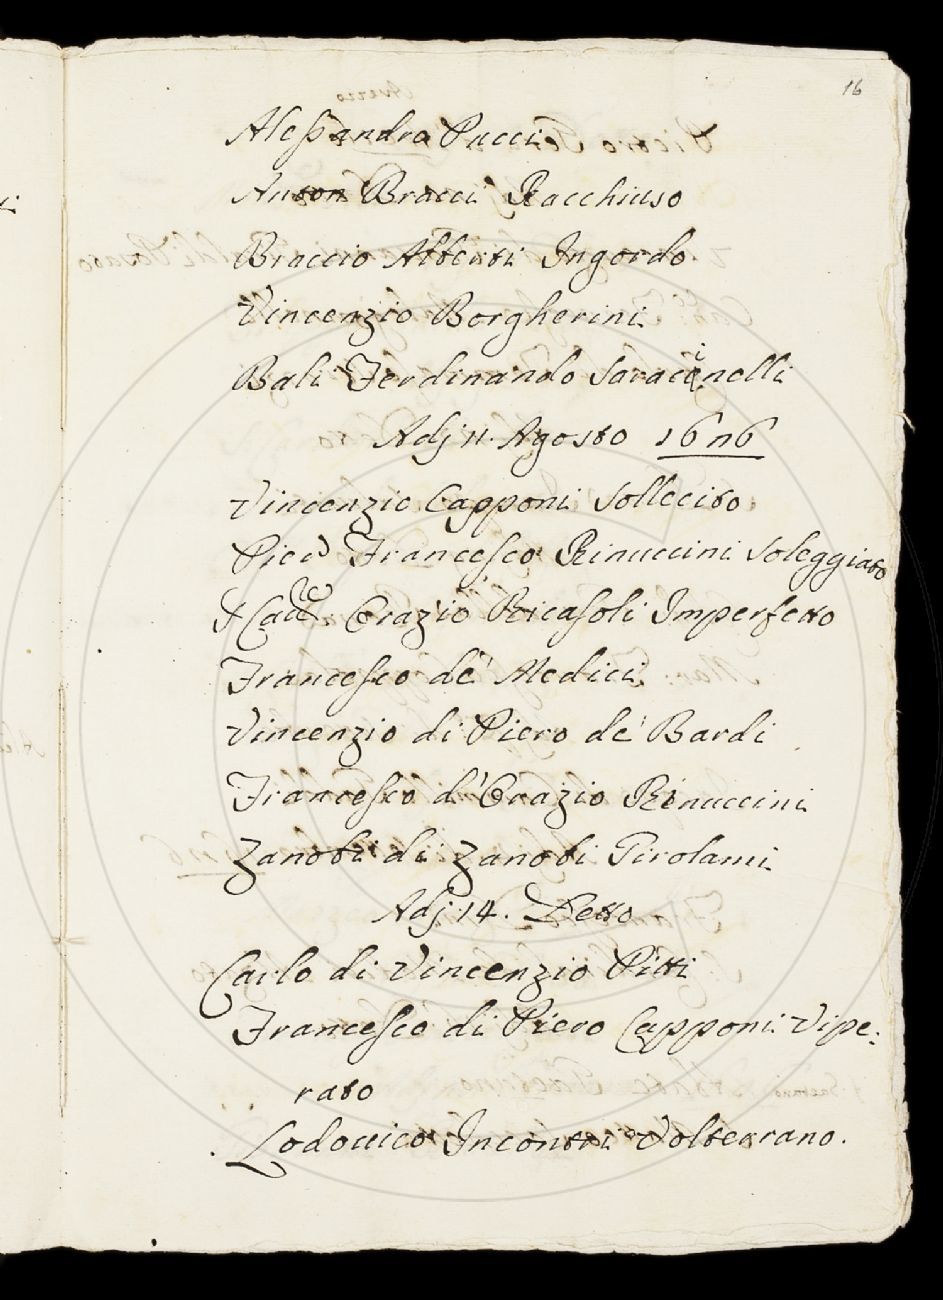 16
Alessandro Pucci
Anton Bracci Racchiuso
Braccio Alberti Ingordo
Vincenzio Borgherini
Bali Ferdinando Saracinelli
Adj 11. Agosto 1616
Vincenzio Capponi Sollecito
Pier Francesco Rinuccini Soleggiato
Orazio Ricasoli Imperfetto
Francesco de' Medici
Vincenzio di Piero de' Bardi
Francesco d'Orazio Rinuccini
Zanobi di Zanobi Girolami
Adj 14. Detto
Carlo di Vincenzio Pitti
Francesco di Piero Capponi Vipe:
rato
Lodovico Incontri Volterrano.